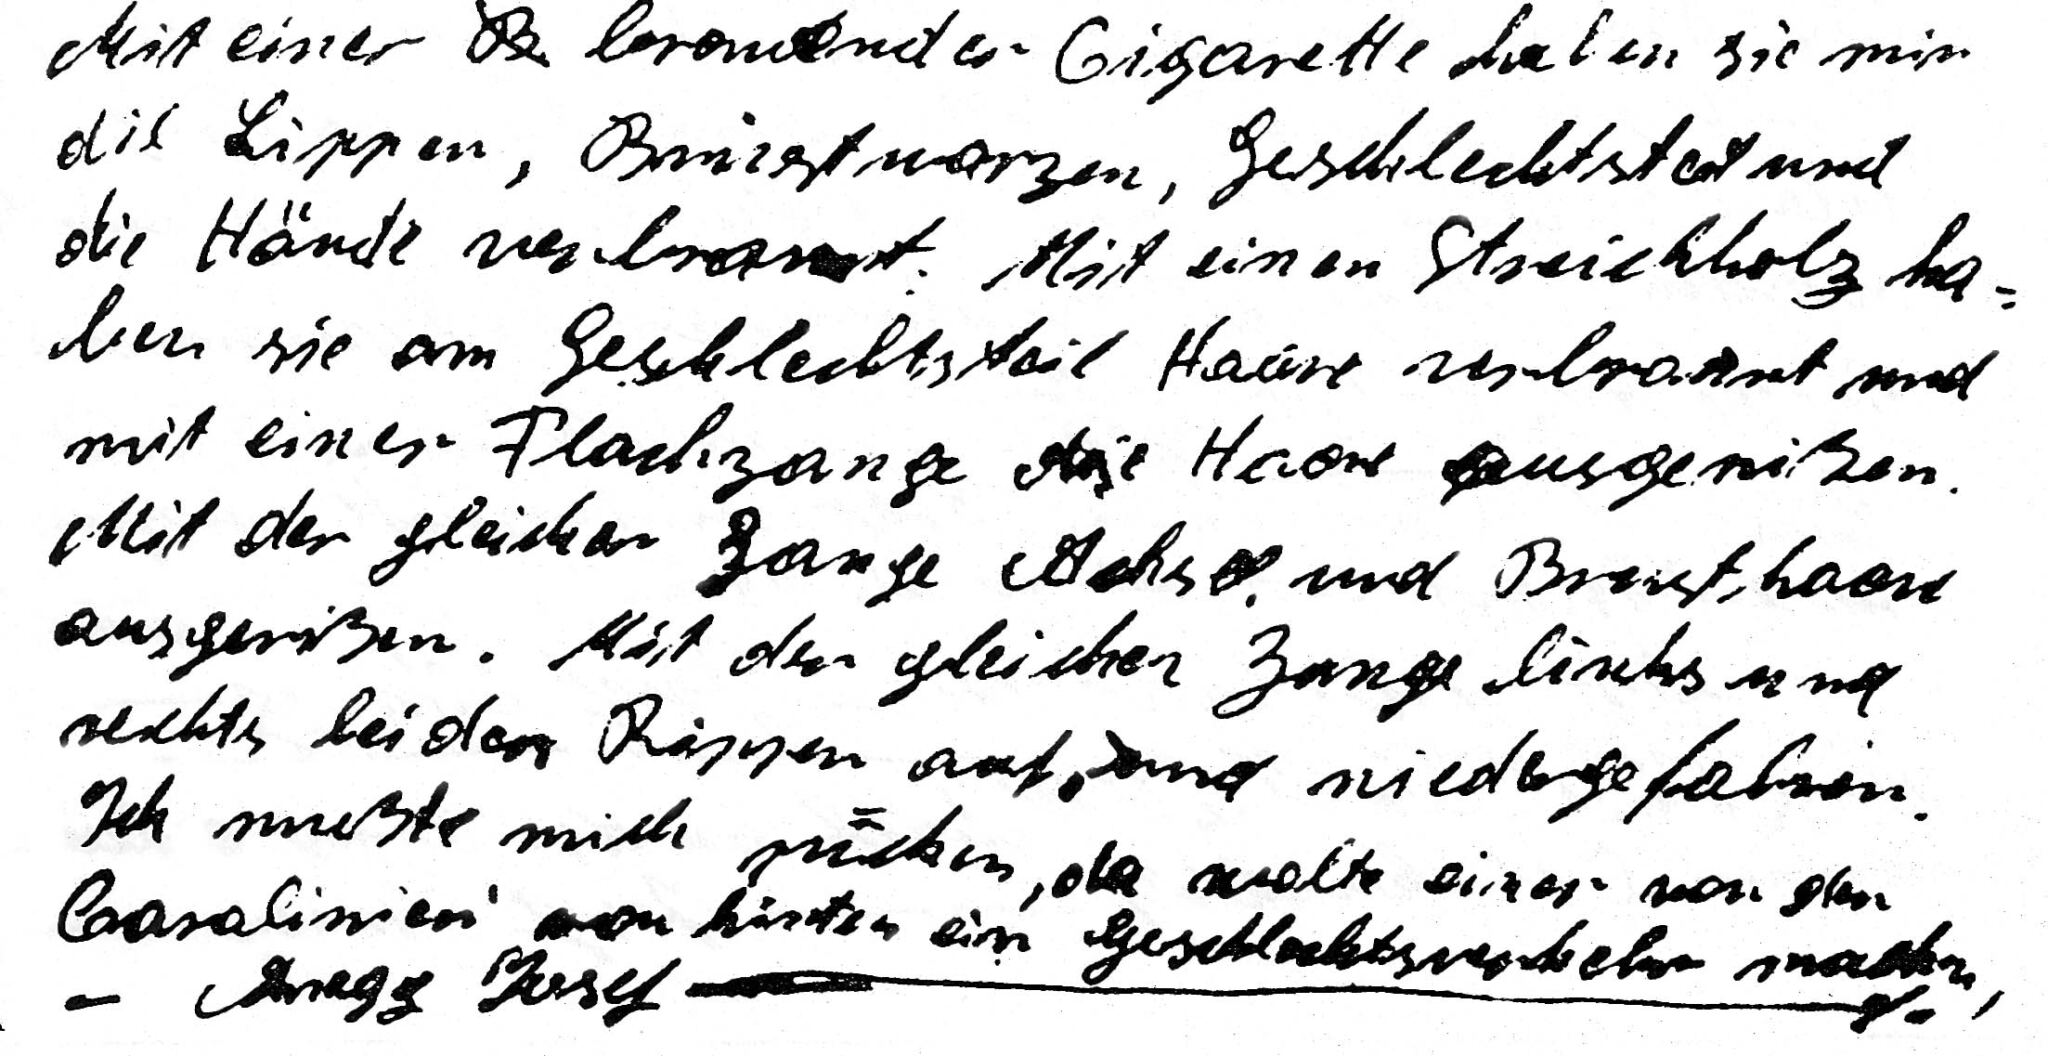 Mit einer brennenden Cigarette haben sie mir
die Lippen, Brustwarzen, Geschlechtsteil und
die Hände verbrannt. Mit einen Streichholz ha=
ben sie am Geschlechtsteil Haare verbrannt und
mit einer Flachzange die Haare ausgerißen.
Mit der gleichen Zange Achsel und Brusthaare
ausgerißen. Mit der gleichen Zange links und
rechts bei den Rippen auf und niedergefahren.
Ich mußte mich bücken, da wolte einer von den
Carabinieri von hinten ein Geschlechtsverkehr machen,
- Anegg Josef